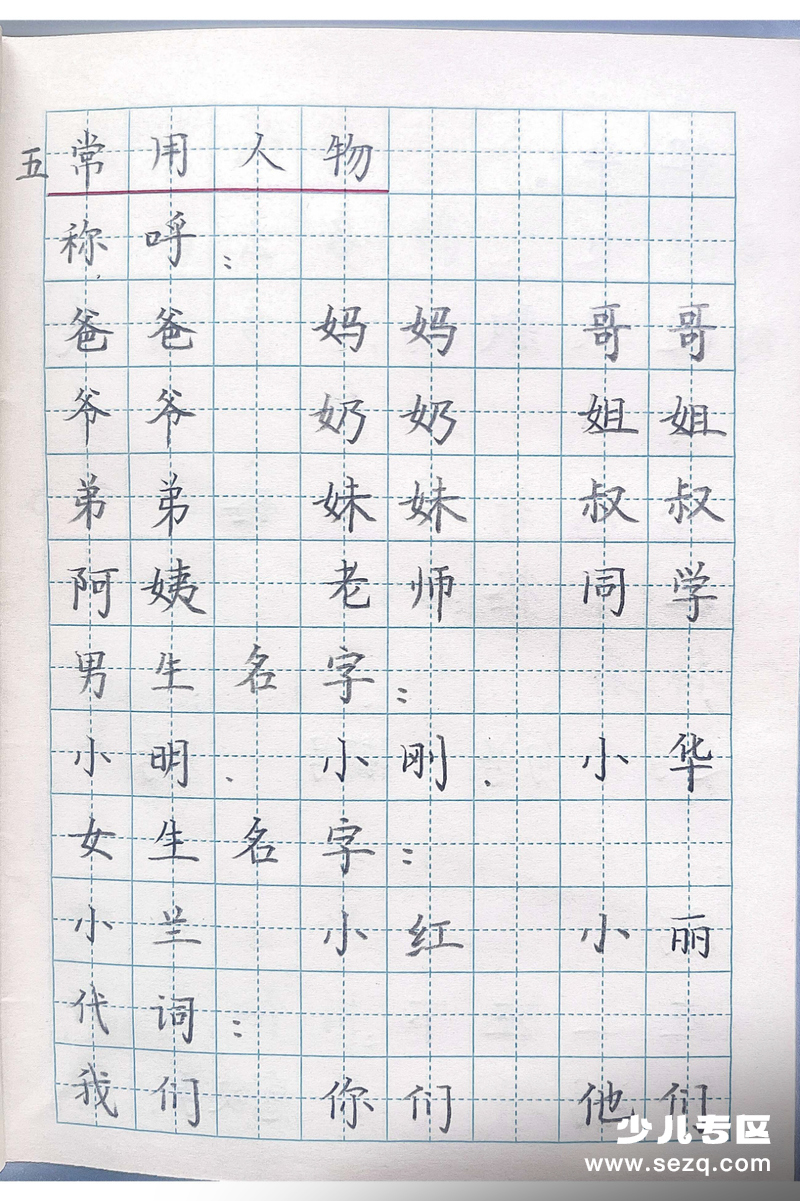 五 常用人物
称呼：
爸爸 妈妈 哥哥
爷爷 奶奶 姐姐
弟弟 妹妹 叔叔
阿姨 老师 同学
男生名字：
小明、小刚、小华
女生名字：
小兰 小红 小丽
代词：
我们 你们 他们
少儿专区
www.sezq.com